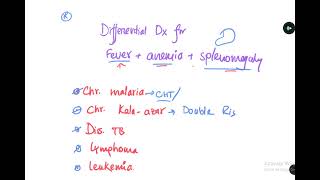 Differential Dx for
Fever + anemia + splenomegaly
Chr. malaria → CHT/
Chr. Kala-azar → Double Ris
Dis. TB
Lymphoma
Leukemia